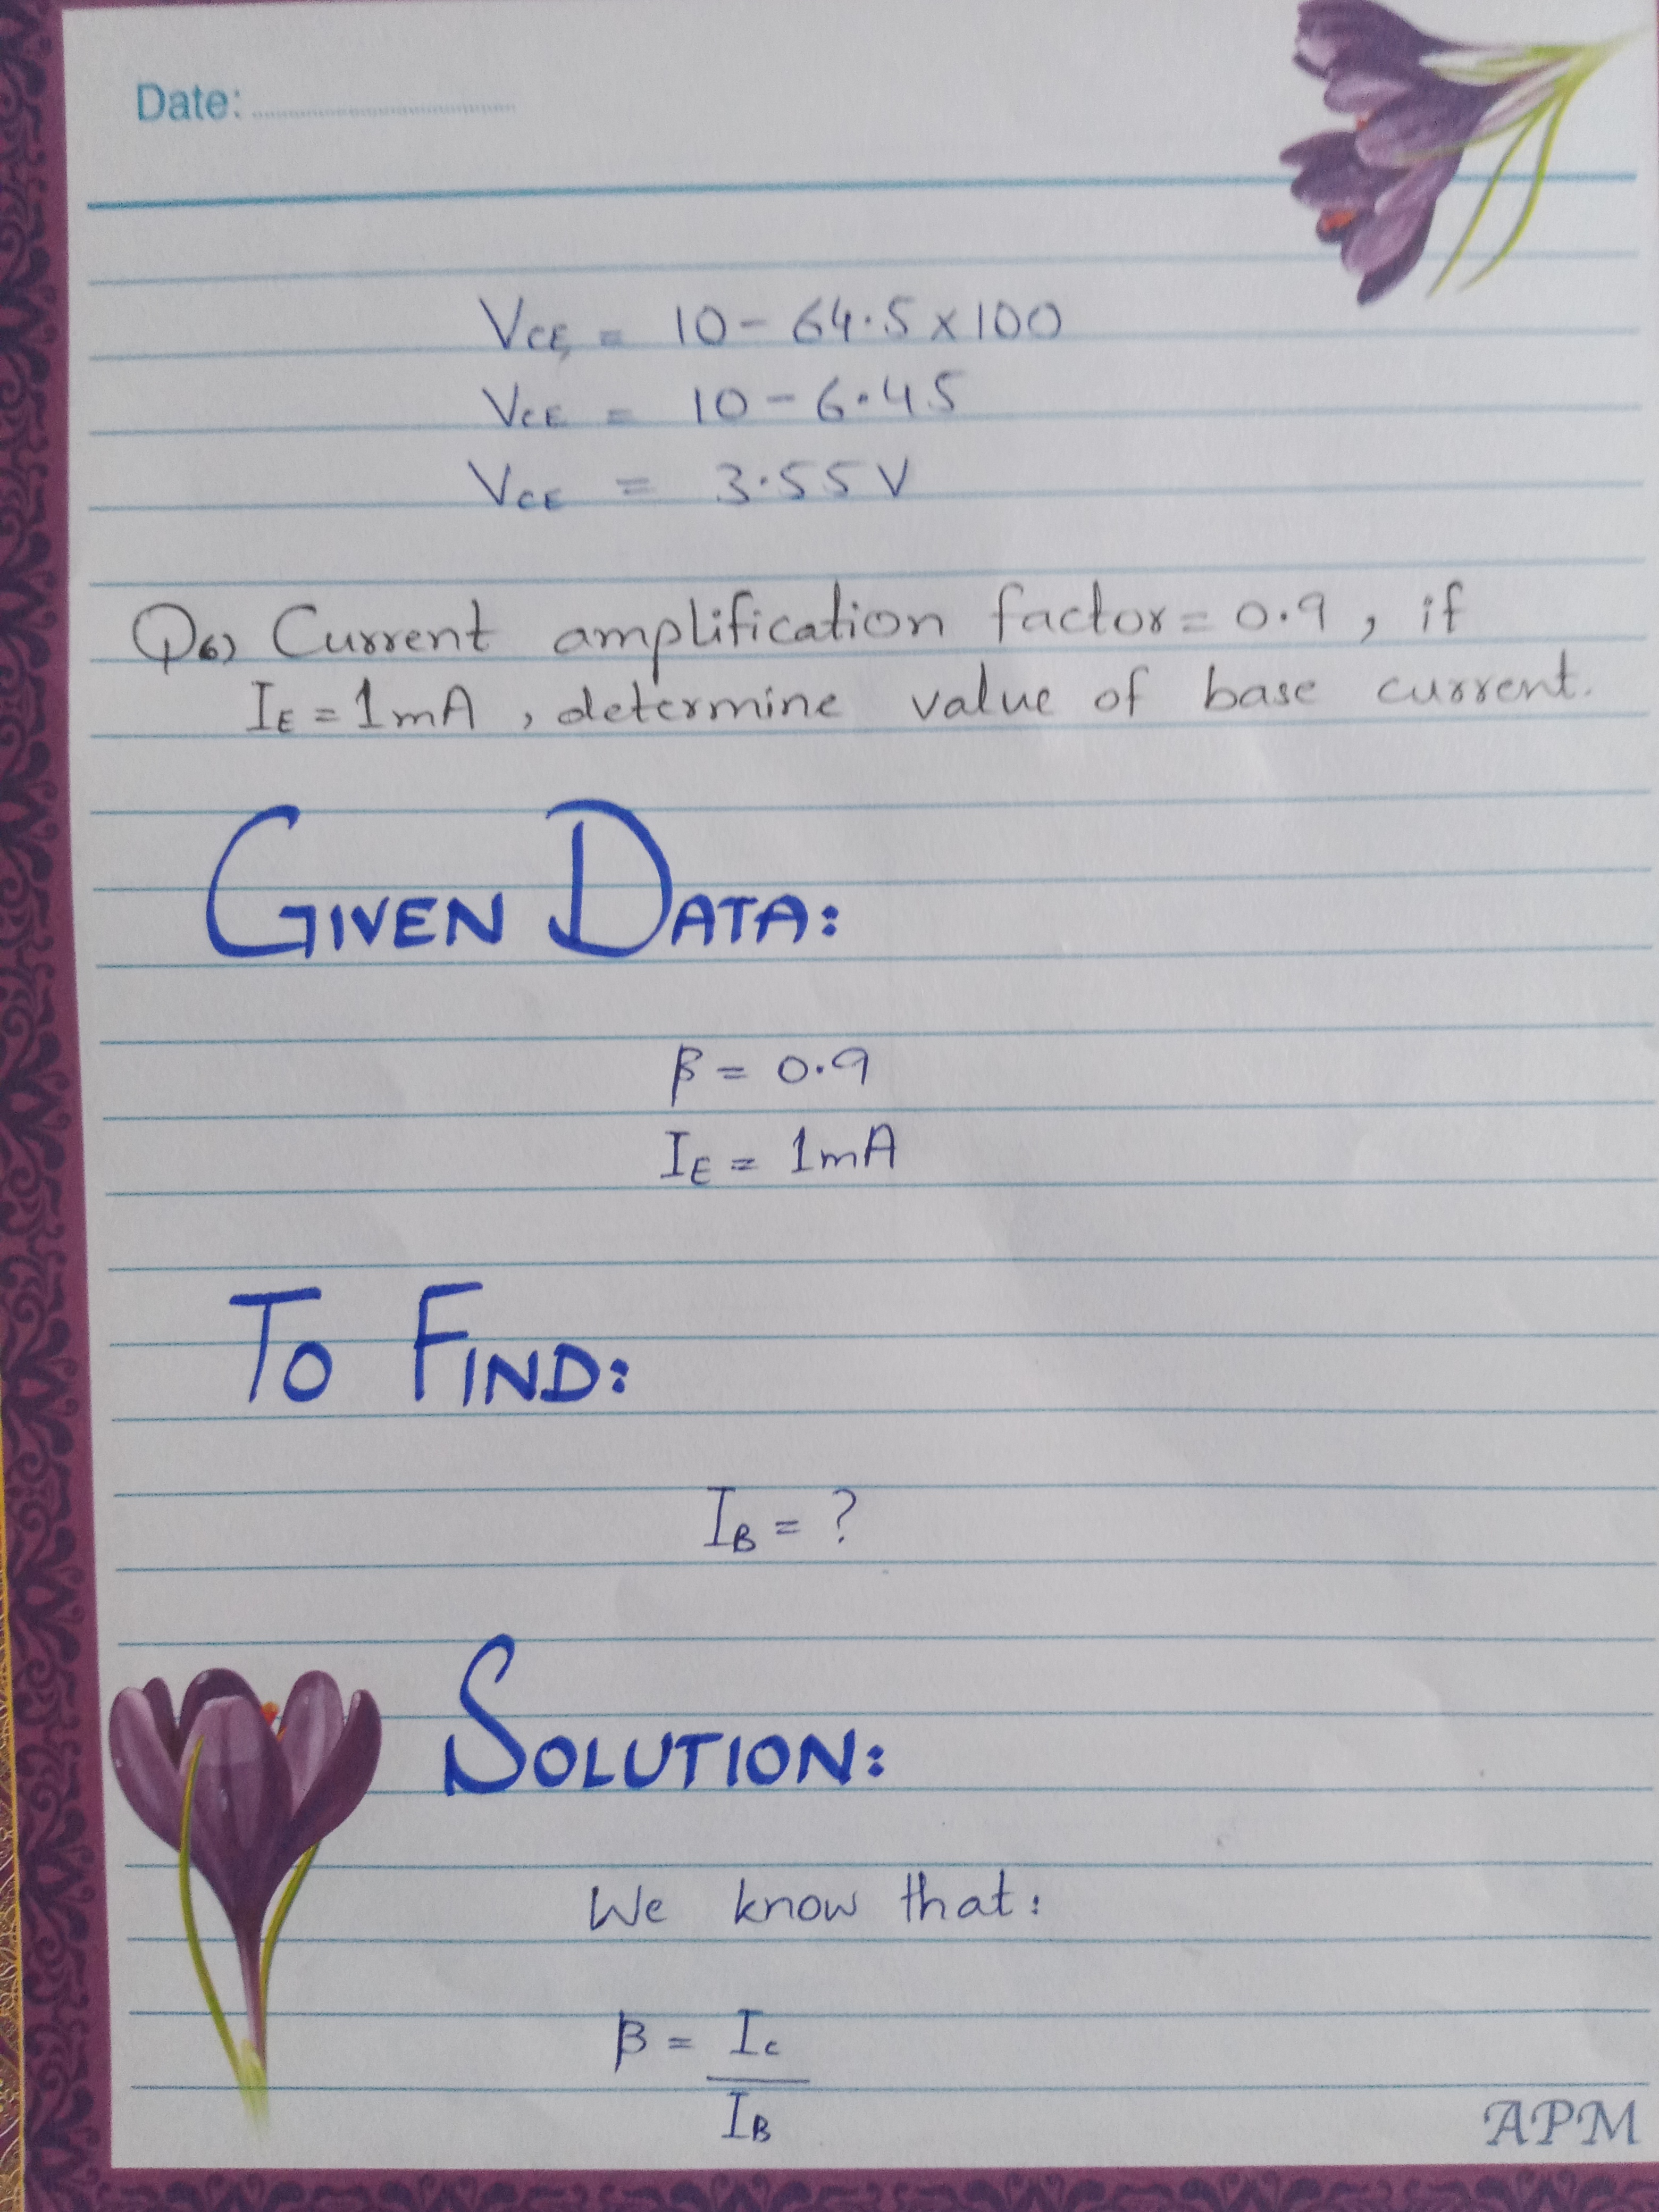 Date:
VCE = 10 - 64.5 x 100
VCE = 10 - 6.45
VCE = 3.55 V
Q6) Current amplification factor = 0.9, if
IE = 1mA, determine value of base current.
GIVEN DATA:
β = 0.9
IE = 1mA
TO FIND:
IB = ?
SOLUTION:
We know that:
β = Ic
IB
APM